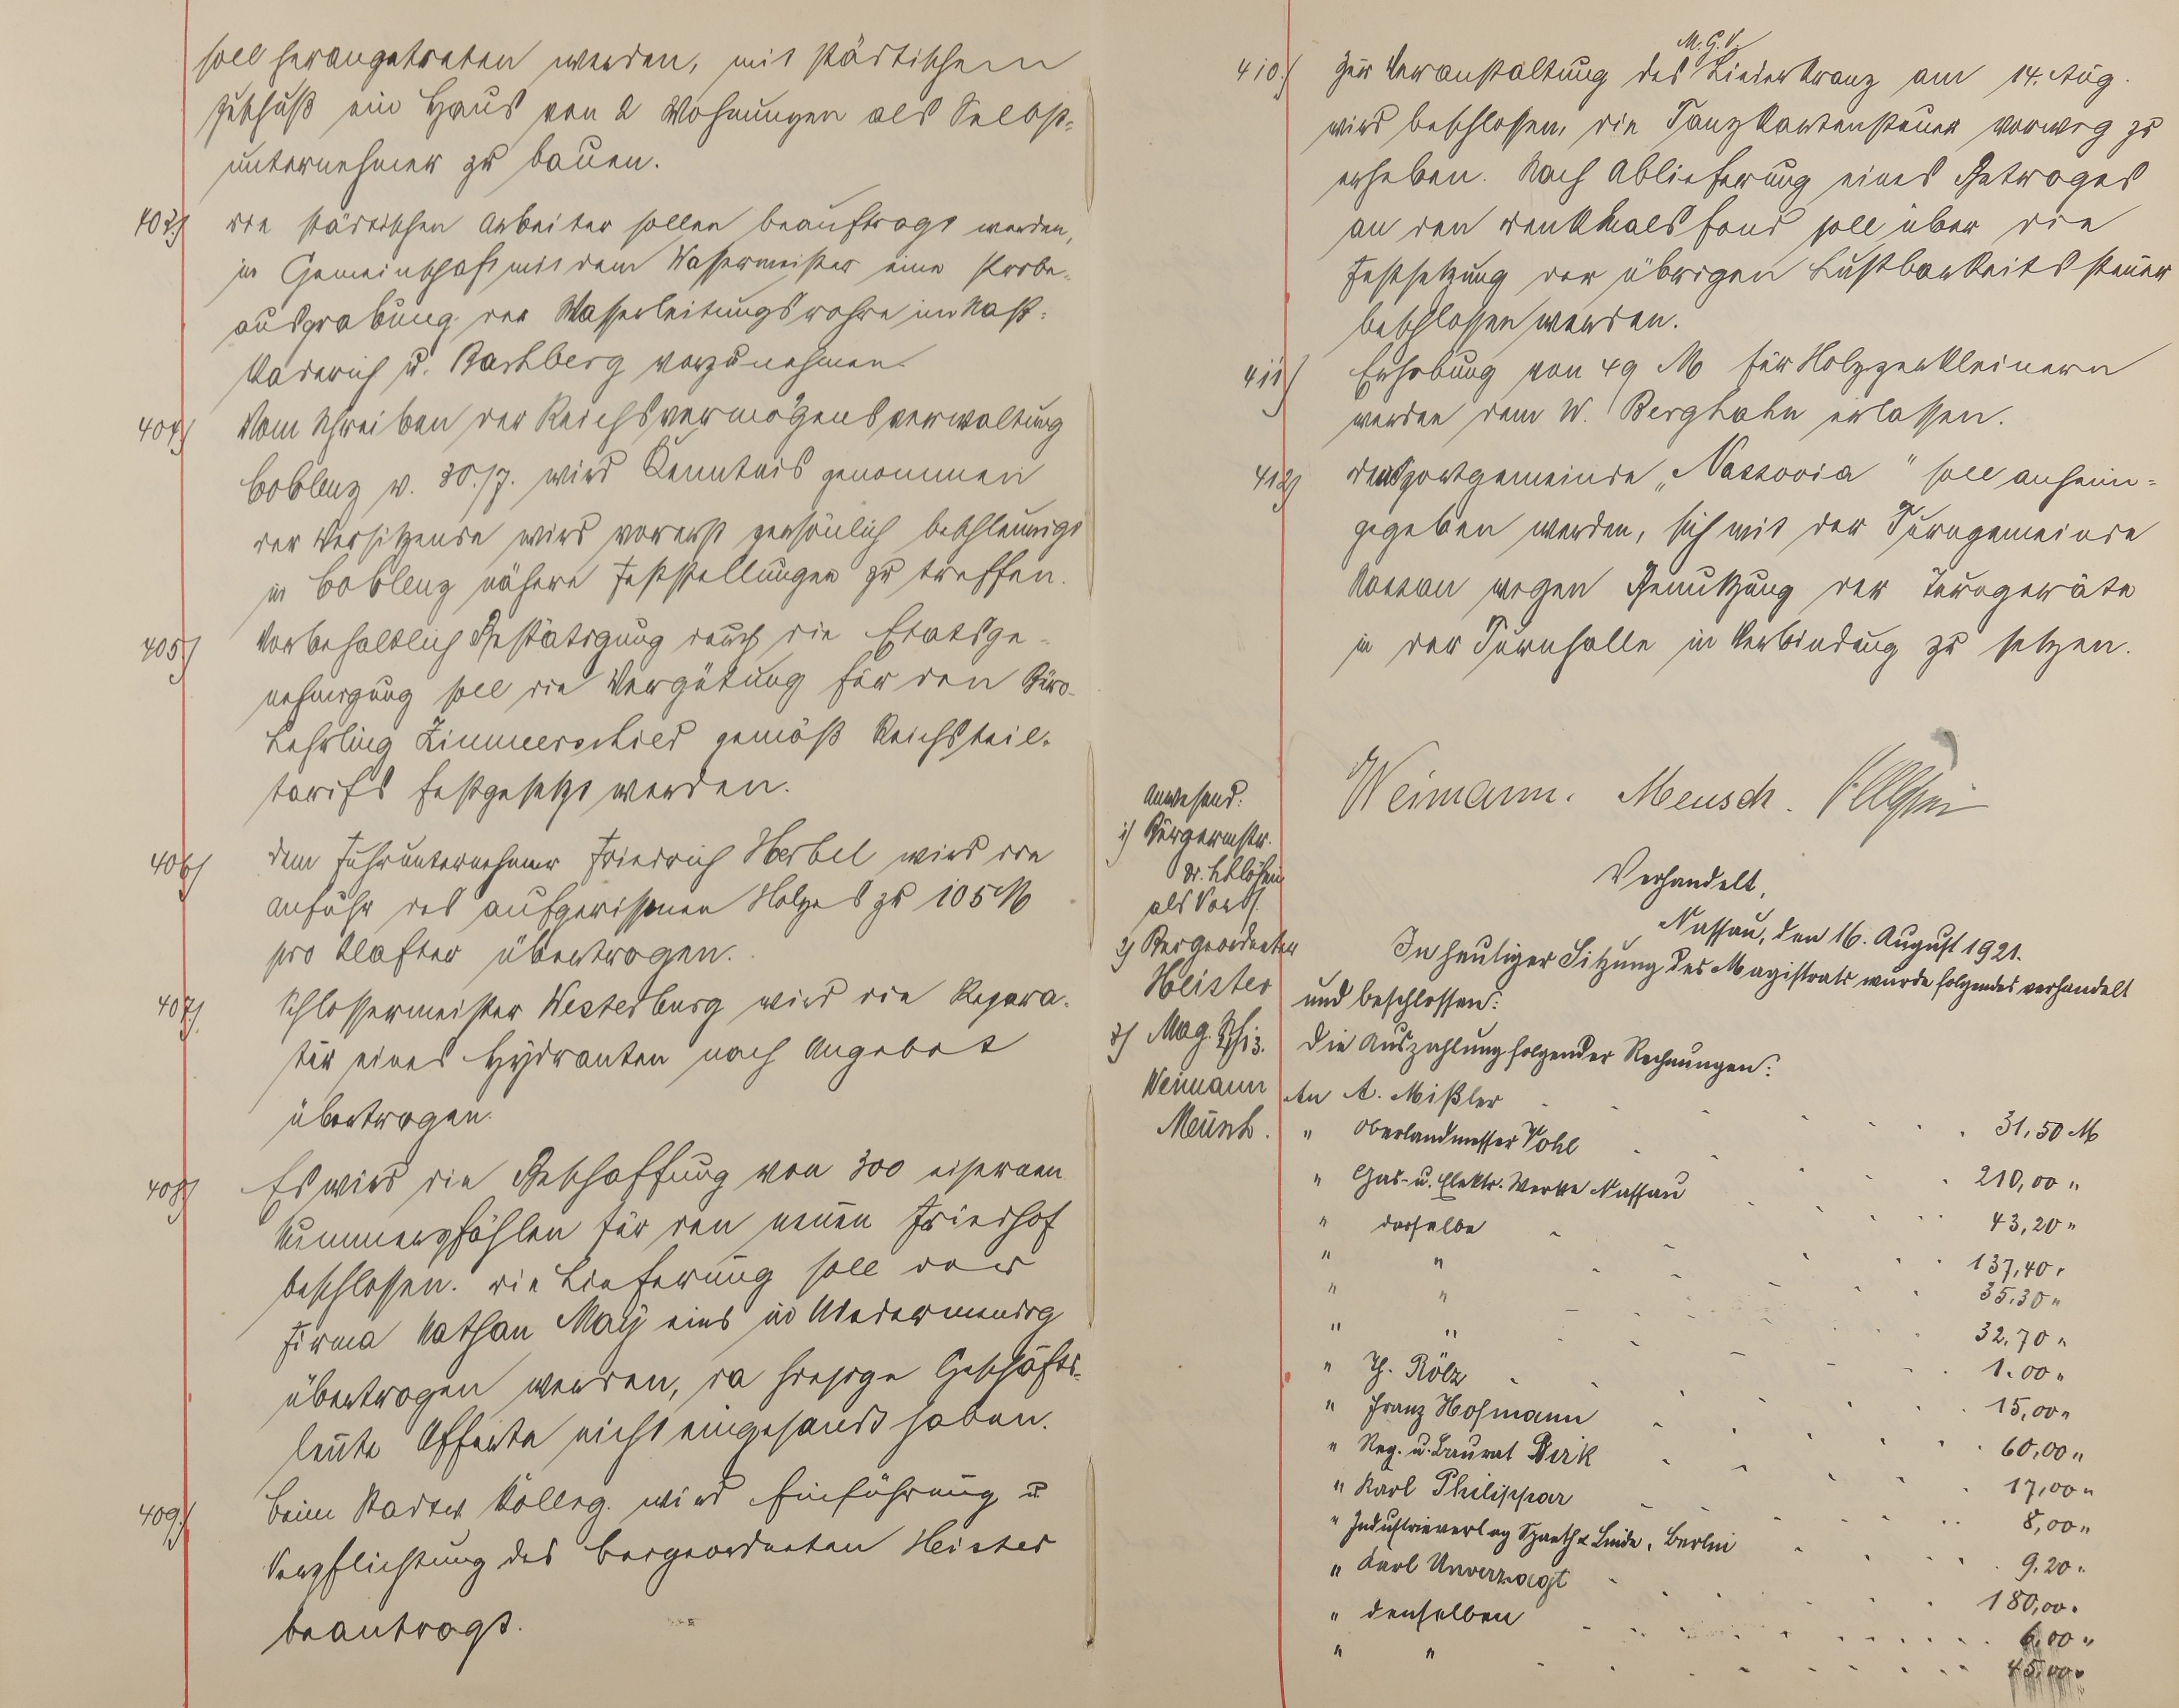 soll herangetreten werden, mit städtischem
Zuschuß ein Haus von 2 Wohnungen als Selbst-
unternehmer zu bauen.
403) Die städtischen Arbeiter sollen beauftragt werden,
in Gemeinschaft mit dem Wassermeister eine Probe-
ausgrabung der Wasserleitungsrohre im
u. vorzunehmen.
404) Vom Schreiben der Reichsvermögensverwaltung
Coblenz v. 30./7. wird Kenntnis genommen
der Vorsitzende wird vorerst persönlich beschleunigt
in Coblenz nähere Feststellungen zu treffen.
405) Vorbehaltlich Bestätigung durch die Etatsge-
nehmigung soll die Vergütung für den Büro-
Lehrling Zimmerschied gemäß Reichsteil-
tarifs festgesetzt werden.
406) Dem Fuhrunternehmer Friedrich Herbel wird die
Anfuhr des aufgerissenen Holzes zu 105 M
pro Klafter übertragen.
407) Schlossermeister Westerburg wird die Repara-
tur eines Hydranten nach Angebot
übertragen.
408) Es wird die Beschaffung von 300 eisernen
Nummerpfählen für den neuen Friedhof
beschlossen. Die Lieferung soll der
Firma Nathan May in Niedermendig
übertragen werden, da hiesige Geschäfts-
leute Offerte nicht eingesandt haben.
409) Beim Stadtv. Kolleg. wird Einführung u
Verpflichtung des Beigeordneten Heister
beantragt.
M. G. V.
410) Zur Veranstaltung des Liederkranz am 14. Aug.
wird beschlossen, die Tanzkartensteuer vorweg zu
erheben. Nach Ablieferung eines Betrages
an den Denkmalsfond soll über die
Festsetzung der übrigen Lustbarkeitssteuer
beschlossen werden.
411) Erhebung von 49 M für Holzzerkleinern
werden dem W. Berghahn erlassen.
412) Der Sportgemeinde „Nassovia" soll anheim-
gegeben werden, sich mit der Turngemeinde
Nassau wegen Benutzung der Turngeräte
in der Turnhalle in Verbindung zu setzen.
Weimann. Meusch.
Anwesend:
1) Bürgermstr.
Dr.
als Vors.
2) Beigeordneter
Heister
3) Mag. Schz.
Weimann
Meusch.
Verhandelt,
Nassau, den 16. August 1921.
In heutiger Sitzung des Magistrats wurde folgendes verhandelt
und beschlossen:
Die Auszahlung folgender Rechnungen:
An A. Mißler 31,50 M
" Oberlandmesser Pohl 210,00 "
" Gas- u. Elektr. Werke Nassau 43,20 "
" dasselbe 137,40 "
" " 35,30 "
" " 32,70 "
" " 1.00 "
" Th. Rölz 15,00 "
" Franz Hofmann 60,00 "
" Reg. u. Baurat Dirk 17,00 "
" Karl Philippar 8,00 "
" Industrieverlag Spaeth & Linde, Berlin 9,20 "
" Karl Unverzagt 180,00 "
" denselben 6,00 "
" " 45,00 "